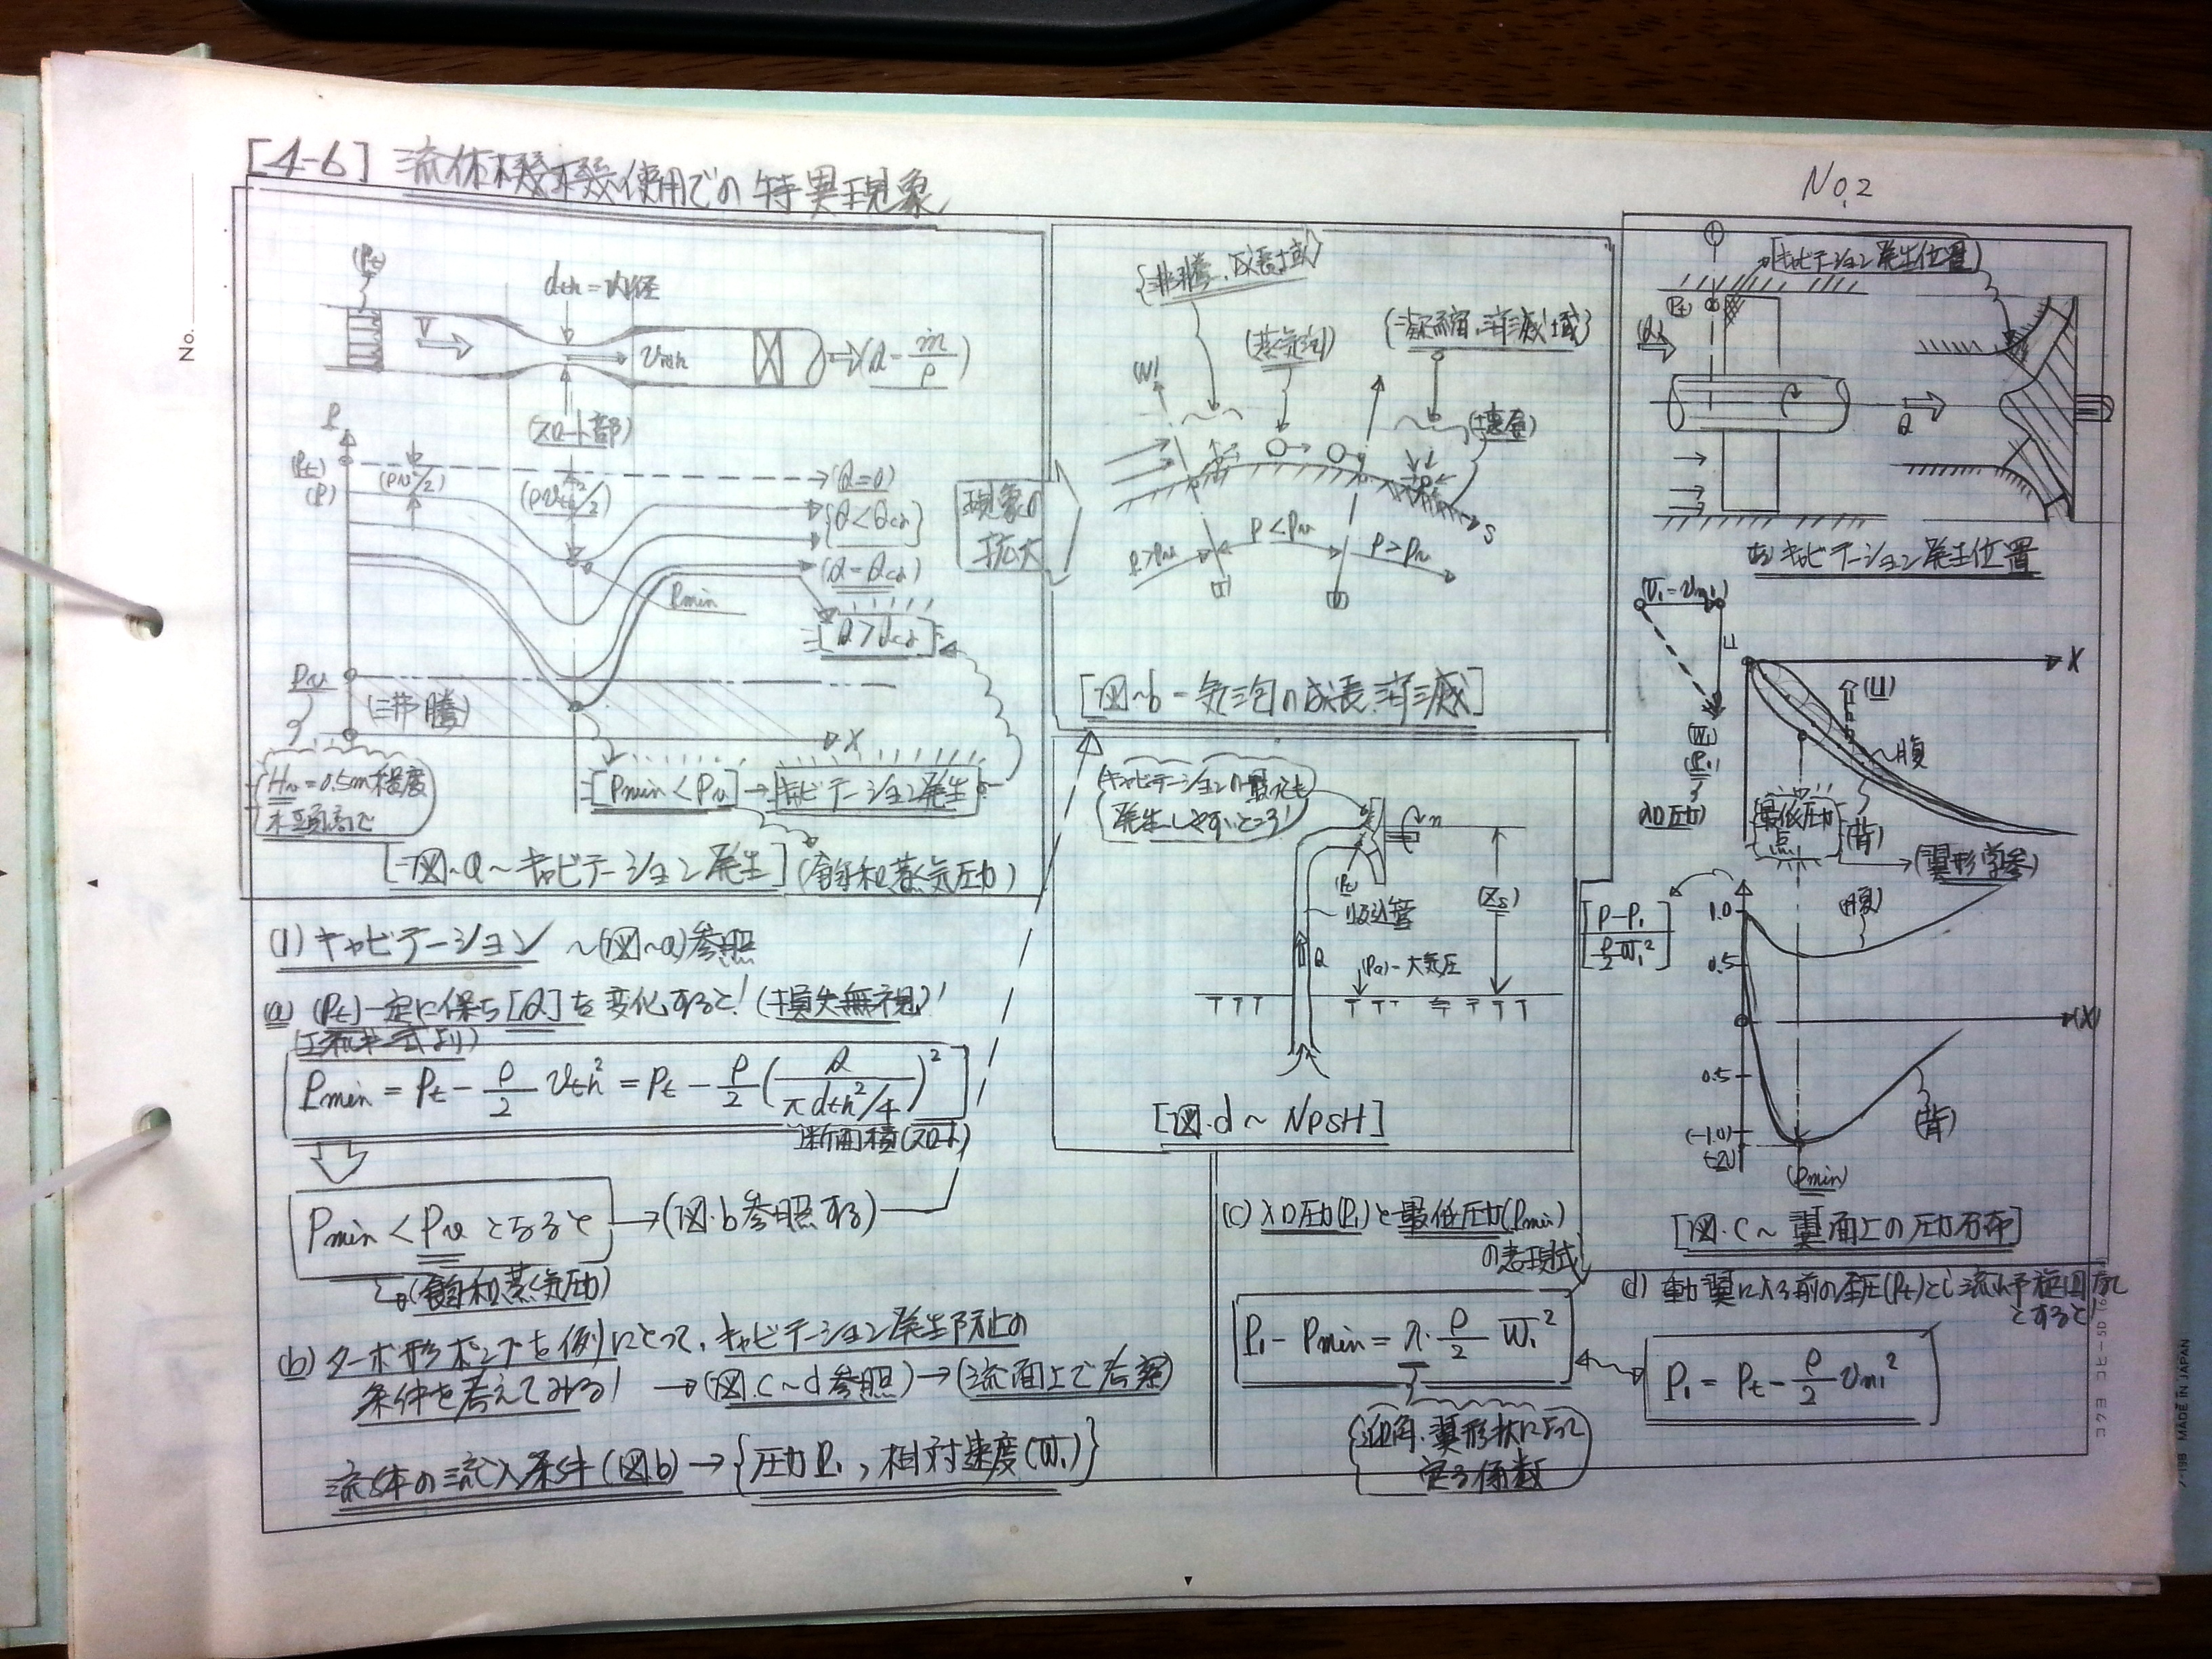 [4-6] 流体機械使用での特異現象
No.2
No.
(Pt)
dth=内径
V
Vth
(Q=ṁ/ρ)
(スロート部)
P
(Pt)
(P)
(ρv²/2)
(ρvth²/2)
(Q=0)
{Q<Qcr}
(Q=Qcr)
[Q>Qcr]
Pmin
Pv
(沸騰)
X
Hv=0.5m程度
水頭高で
[Pmin<Pv]→キャビテーション発生
[図.a~キャビテーション発生]
(飽和蒸気圧力)
現象の
拡大
{沸騰、成長域}
(蒸気泡)
{凝縮、消滅域}
(壊食)
P>Pv
P<Pv
P>Pv
S
[図~b-気泡の成長、消滅]
キャビテーションの最も
発生しやすいところ!
n
(Pt)
吸込管
Q
(Pa)-大気圧
(Zs)
[図.d~NPSH]
①
[キャビテーション発生位置]
(Pt)
Q
キャビテーション発生位置
(V1=Vm1)
U
X
(U)
腹
(W1)
(P1)
入口圧力
最低圧力
点
(背)
(翼形学参)
[P-P1 / ρ/2 W1²]
1.0
0.5
(腹)
(X)
0.5
(-1.0)
(-2)
(背)
(Pmin)
[図.c~翼面上の圧力分布]
(1)キャビテーション ~(図~a)参照
(a) (Pt)一定に保ち[Q]を変化すると!(損失無視)!
Pmin = Pt - ρ/2 Vth² = Pt - ρ/2 (Q / π dth²/4)²
断面積(スロート)
Pmin<Pvとなると →(図.b参照する)
(飽和蒸気圧力)
(b)ターボ形ポンプを例にとって、キャビテーション発生防止の
条件を考えてみる! →(図.c~d参照)→(流面上で考察)
流体の流入条件(図b)→{圧力P1, 相対速度(W1)}
(c)入口圧力(P1)と最低圧力(Pmin)
の表現式
P1-Pmin=λ·ρ/2 W1²
迎角、翼形状によって
定る係数
d)動翼に入る前の全圧(Pt)とし流れ予旋回無し
とすると!
P1=Pt-ρ/2 Vm1²
MADE IN JAPAN